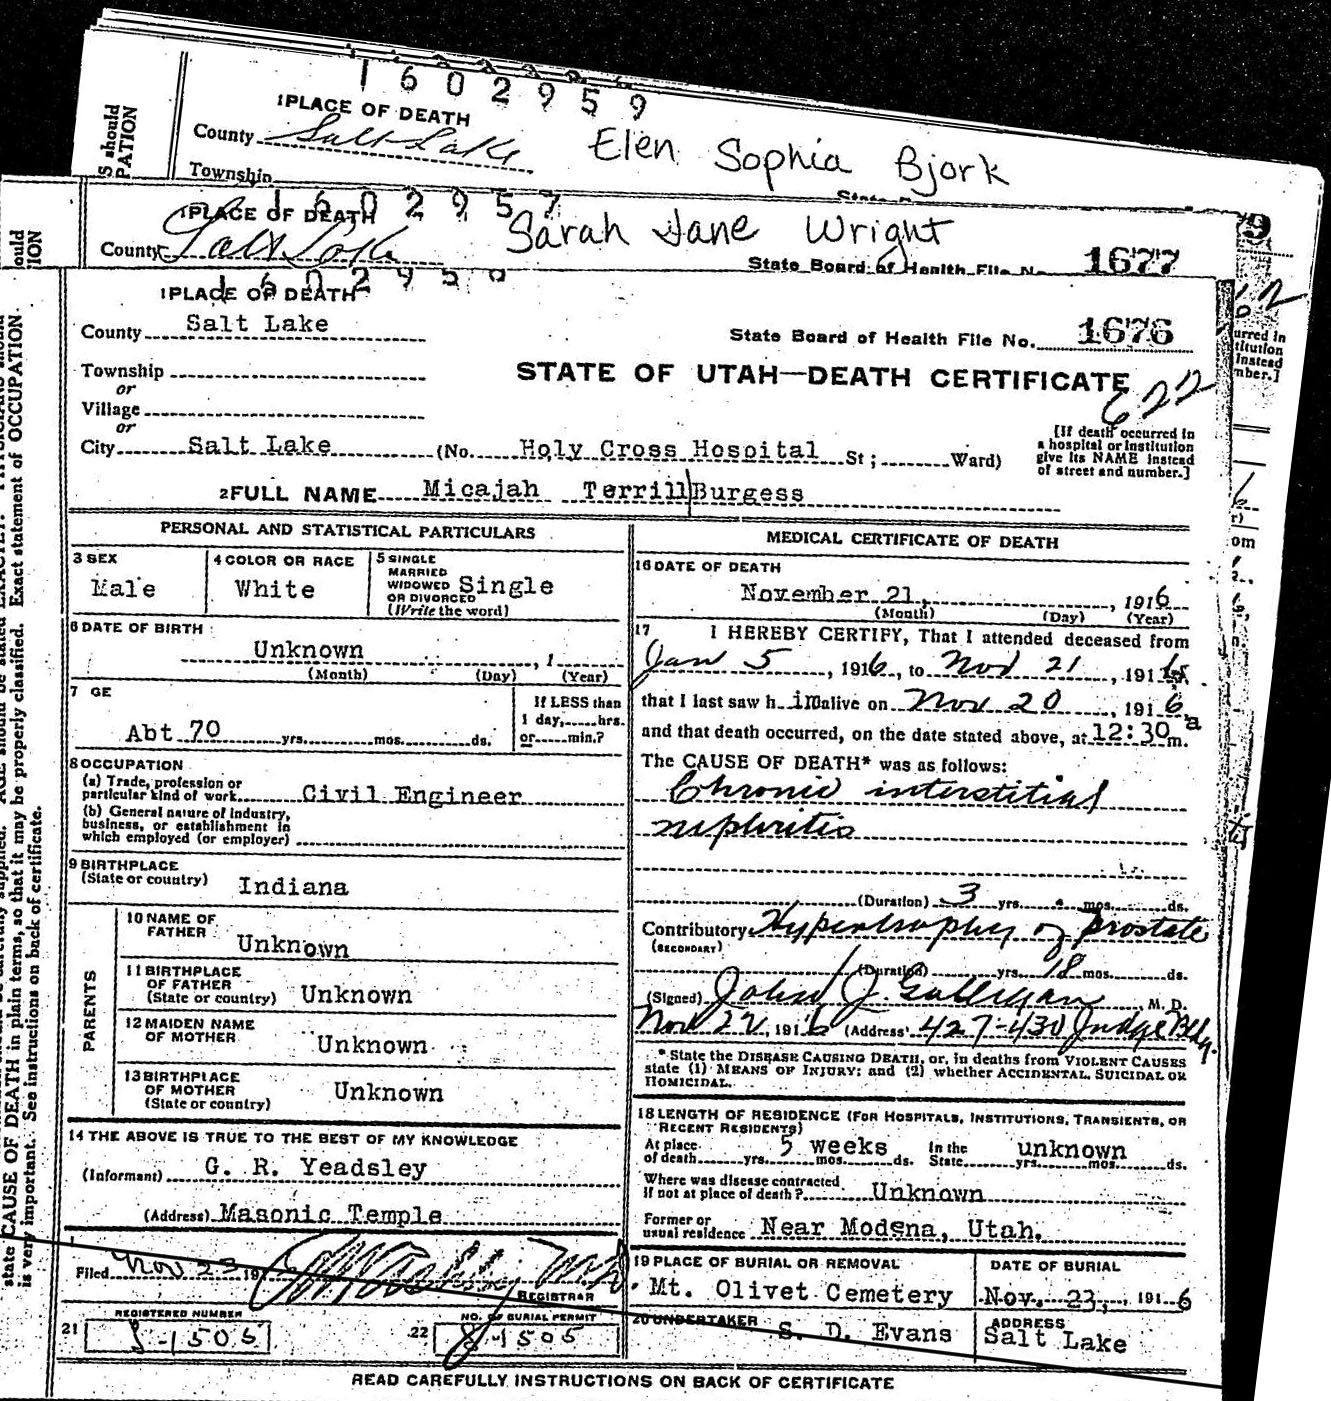 1602959
1 PLACE OF DEATH
County Salt Lake Elen Sophia Bjork
Township
S should
PATION
1602957
1 PLACE OF DEATH Sarah Jane Wright
County Salt Lake
State Board of Health File No. 1677
ould
ION
1 PLACE OF DEATH
County Salt Lake
State Board of Health File No. 1676
Township
STATE OF UTAH—DEATH CERTIFICATE
or
622
Village
or
City Salt Lake (No. Holy Cross Hospital St; Ward)
[If death occurred in
a hospital or institution
give its NAME instead
of street and number.]
2 FULL NAME Micajah Terrill Burgess
PERSONAL AND STATISTICAL PARTICULARS
3 SEX
Male
4 COLOR OR RACE
White
5 SINGLE
MARRIED
WIDOWED
OR DIVORCED
(Write the word)
Single
6 DATE OF BIRTH
Unknown , 1
(Month) (Day) (Year)
7 GE
Abt 70 yrs. mos. ds.
If LESS than
1 day, hrs.
or min.?
8 OCCUPATION
(a) Trade, profession or
particular kind of work Civil Engineer
(b) General nature of industry,
business, or establishment in
which employed (or employer)
9 BIRTHPLACE
(State or country) Indiana
PARENTS
10 NAME OF
FATHER Unknown
11 BIRTHPLACE
OF FATHER
(State or country) Unknown
12 MAIDEN NAME
OF MOTHER Unknown
13 BIRTHPLACE
OF MOTHER
(State or country) Unknown
14 THE ABOVE IS TRUE TO THE BEST OF MY KNOWLEDGE
(Informant) G. R. Yeadsley
(Address) Masonic Temple
Filed Nov 23 191
REGISTRAR
REGISTERED NUMBER
21 J-1505
NO. OF BURIAL PERMIT
22 J-1505
MEDICAL CERTIFICATE OF DEATH
16 DATE OF DEATH
November 21, , 1916
(Month) (Day) (Year)
17 I HEREBY CERTIFY, That I attended deceased from
Jan 5 , 1916, to Nov 21 , 1916
that I last saw h im alive on Nov 20 , 1916
and that death occurred, on the date stated above, at 12:30 a m.
The CAUSE OF DEATH* was as follows:
Chronic interstitial
nephritis
(Duration) 3 yrs. mos. ds.
Contributory Hypertrophy of prostate
(SECONDARY)
(Duration) yrs. 18 mos. ds.
(Signed) John J. Galligan , M. D.
Nov 22, 1916 (Address) 427-430 Judge Bldg.
* State the DISEASE CAUSING DEATH, or, in deaths from VIOLENT CAUSES
state (1) MEANS OF INJURY; and (2) whether ACCIDENTAL, SUICIDAL OR
HOMICIDAL.
18 LENGTH OF RESIDENCE (FOR HOSPITALS, INSTITUTIONS, TRANSIENTS, OR
RECENT RESIDENTS)
At place
of death yrs. 5 weeks mos. ds. In the
State unknown yrs. mos. ds.
Where was disease contracted
if not at place of death? Unknown
Former or
usual residence Near Modena, Utah.
19 PLACE OF BURIAL OR REMOVAL
Mt. Olivet Cemetery
DATE OF BURIAL
Nov. 23, , 1916
20 UNDERTAKER
S. D. Evans
ADDRESS
Salt Lake
READ CAREFULLY INSTRUCTIONS ON BACK OF CERTIFICATE
state CAUSE OF DEATH in plain terms, so that it may be properly classified. Exact statement of OCCUPATION
is very important. See instructions on back of certificate.